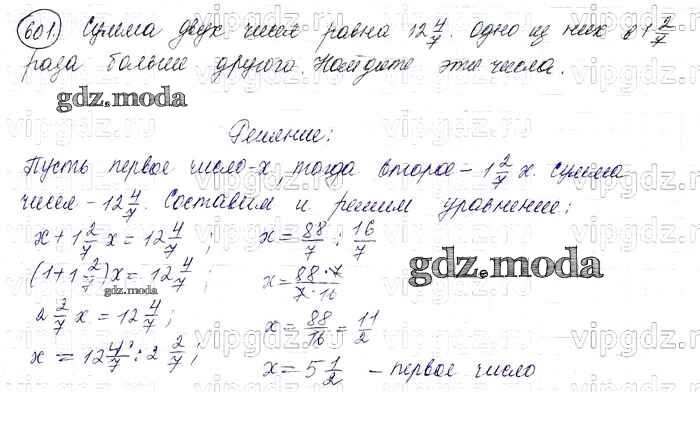 601. Сумма двух чисел равна 12 4/7. Одно из них в 1 2/7
раза больше другого. Найдите эти числа.
gdz.moda
Решение:
Пусть первое число - x, тогда второе - 1 2/7 x. Сумма
чисел - 12 4/7. Составим и решим уравнение:
x + 1 2/7 x = 12 4/7;
(1 + 1 2/7)x = 12 4/7;
gdz.moda
2 2/7 x = 12 4/7;
x = 12 4/7 : 2 2/7;
x = 88/7 : 16/7
x = 88·7/7·16
gdz.moda
x = 88/16 = 11/2
x = 5 1/2 - первое число
vipgdz.ru